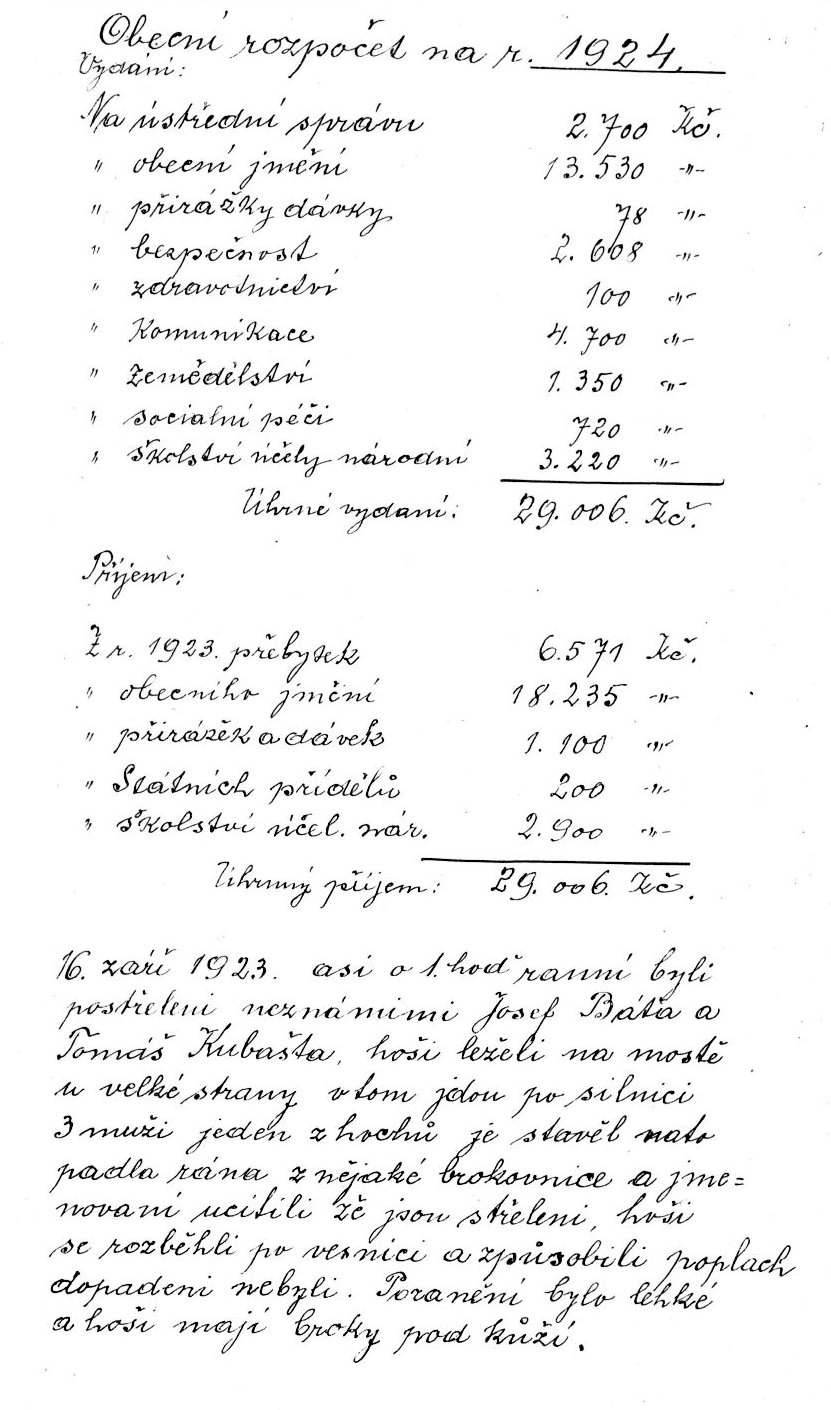 Obecní rozpočet na r. 1924.
Vydání:
Na ústřední správu 2.700 Kč.
" obecní jmění 13.530 -"-
" přirážky dávky 78 -"-
" bezpečnost 2.608 -"-
" zdravotnictví 100 -"-
" Komunikace 4.700 -"-
" Zemědělství 1.350 -"-
" socialní péči 720 -"-
" školství účely národní 3.220 -"-
Úhrné vydaní: 29.006. Kč.
Příjem:
Z r. 1923. přebytek 6.571 Kč.
" obecního jmění 18.235 -"-
" přirážek a dávek 1.100 -"-
" Státních přídělů 200 -"-
" školství účel. nár. 2.900 -"-
Úhrnný příjem: 29.006. Kč.
16. září 1923. asi o 1. hoď ranní byli
postřeleni neznámimi Josef Báťa a
Tomáš Kubašta, hoši leželi na mostě
u velké strany v tom jdou po silnici
3 muži jeden z hochů je stavěl nato
padla rána z nějaké brokovnice a jme=
novaní ucitili žě jsou střeleni, hoši
se rozběhli po vesnici a způsobili poplach
dopadeni nebyli. Poranění bylo lehké
a hoši mají broky pod kůží.